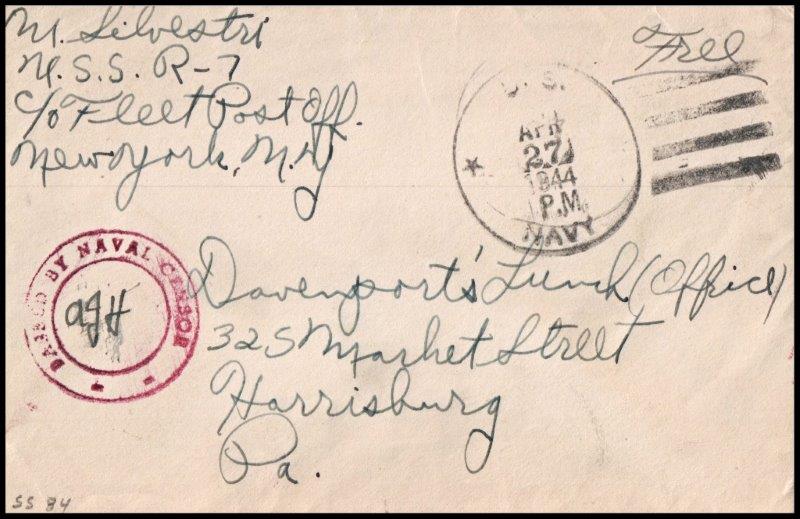 M. Silvestri
U.S.S. R-7
c/o Fleet Post Off.
New York, N.Y
Free
U.S.
APR
27
1944
P.M.
NAVY
PASSED BY NAVAL CENSOR
Davenport's Lunch (Office)
325 Market Street
Harrisburg
Pa.
SS 84